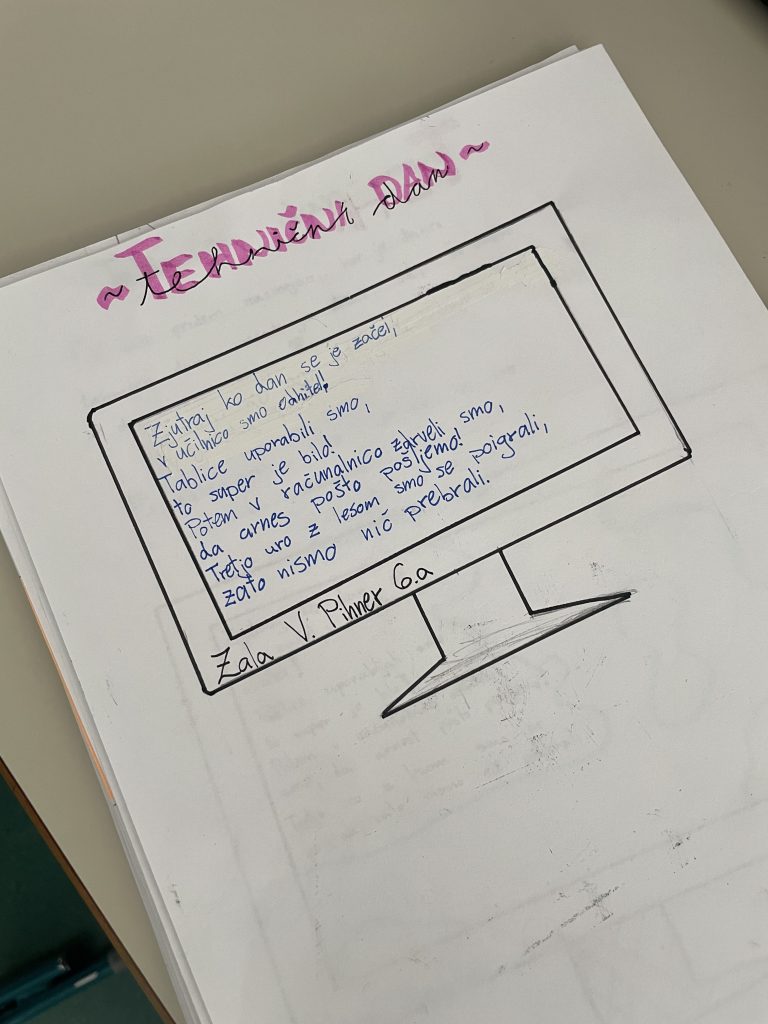 ~ TEHNIČNI DAN ~
~ tehnični dan ~
Zjutraj ko dan se je začel,
v učilnico smo odhitel!
Tablice uporabili smo,
to super je bilo!
Potem v računalnico zdrveli smo,
da arnes pošto pošljemo!
Tretjo uro z lesom smo se poigrali,
zato nismo nič prebrali.
Zala V. Pihner 6.a